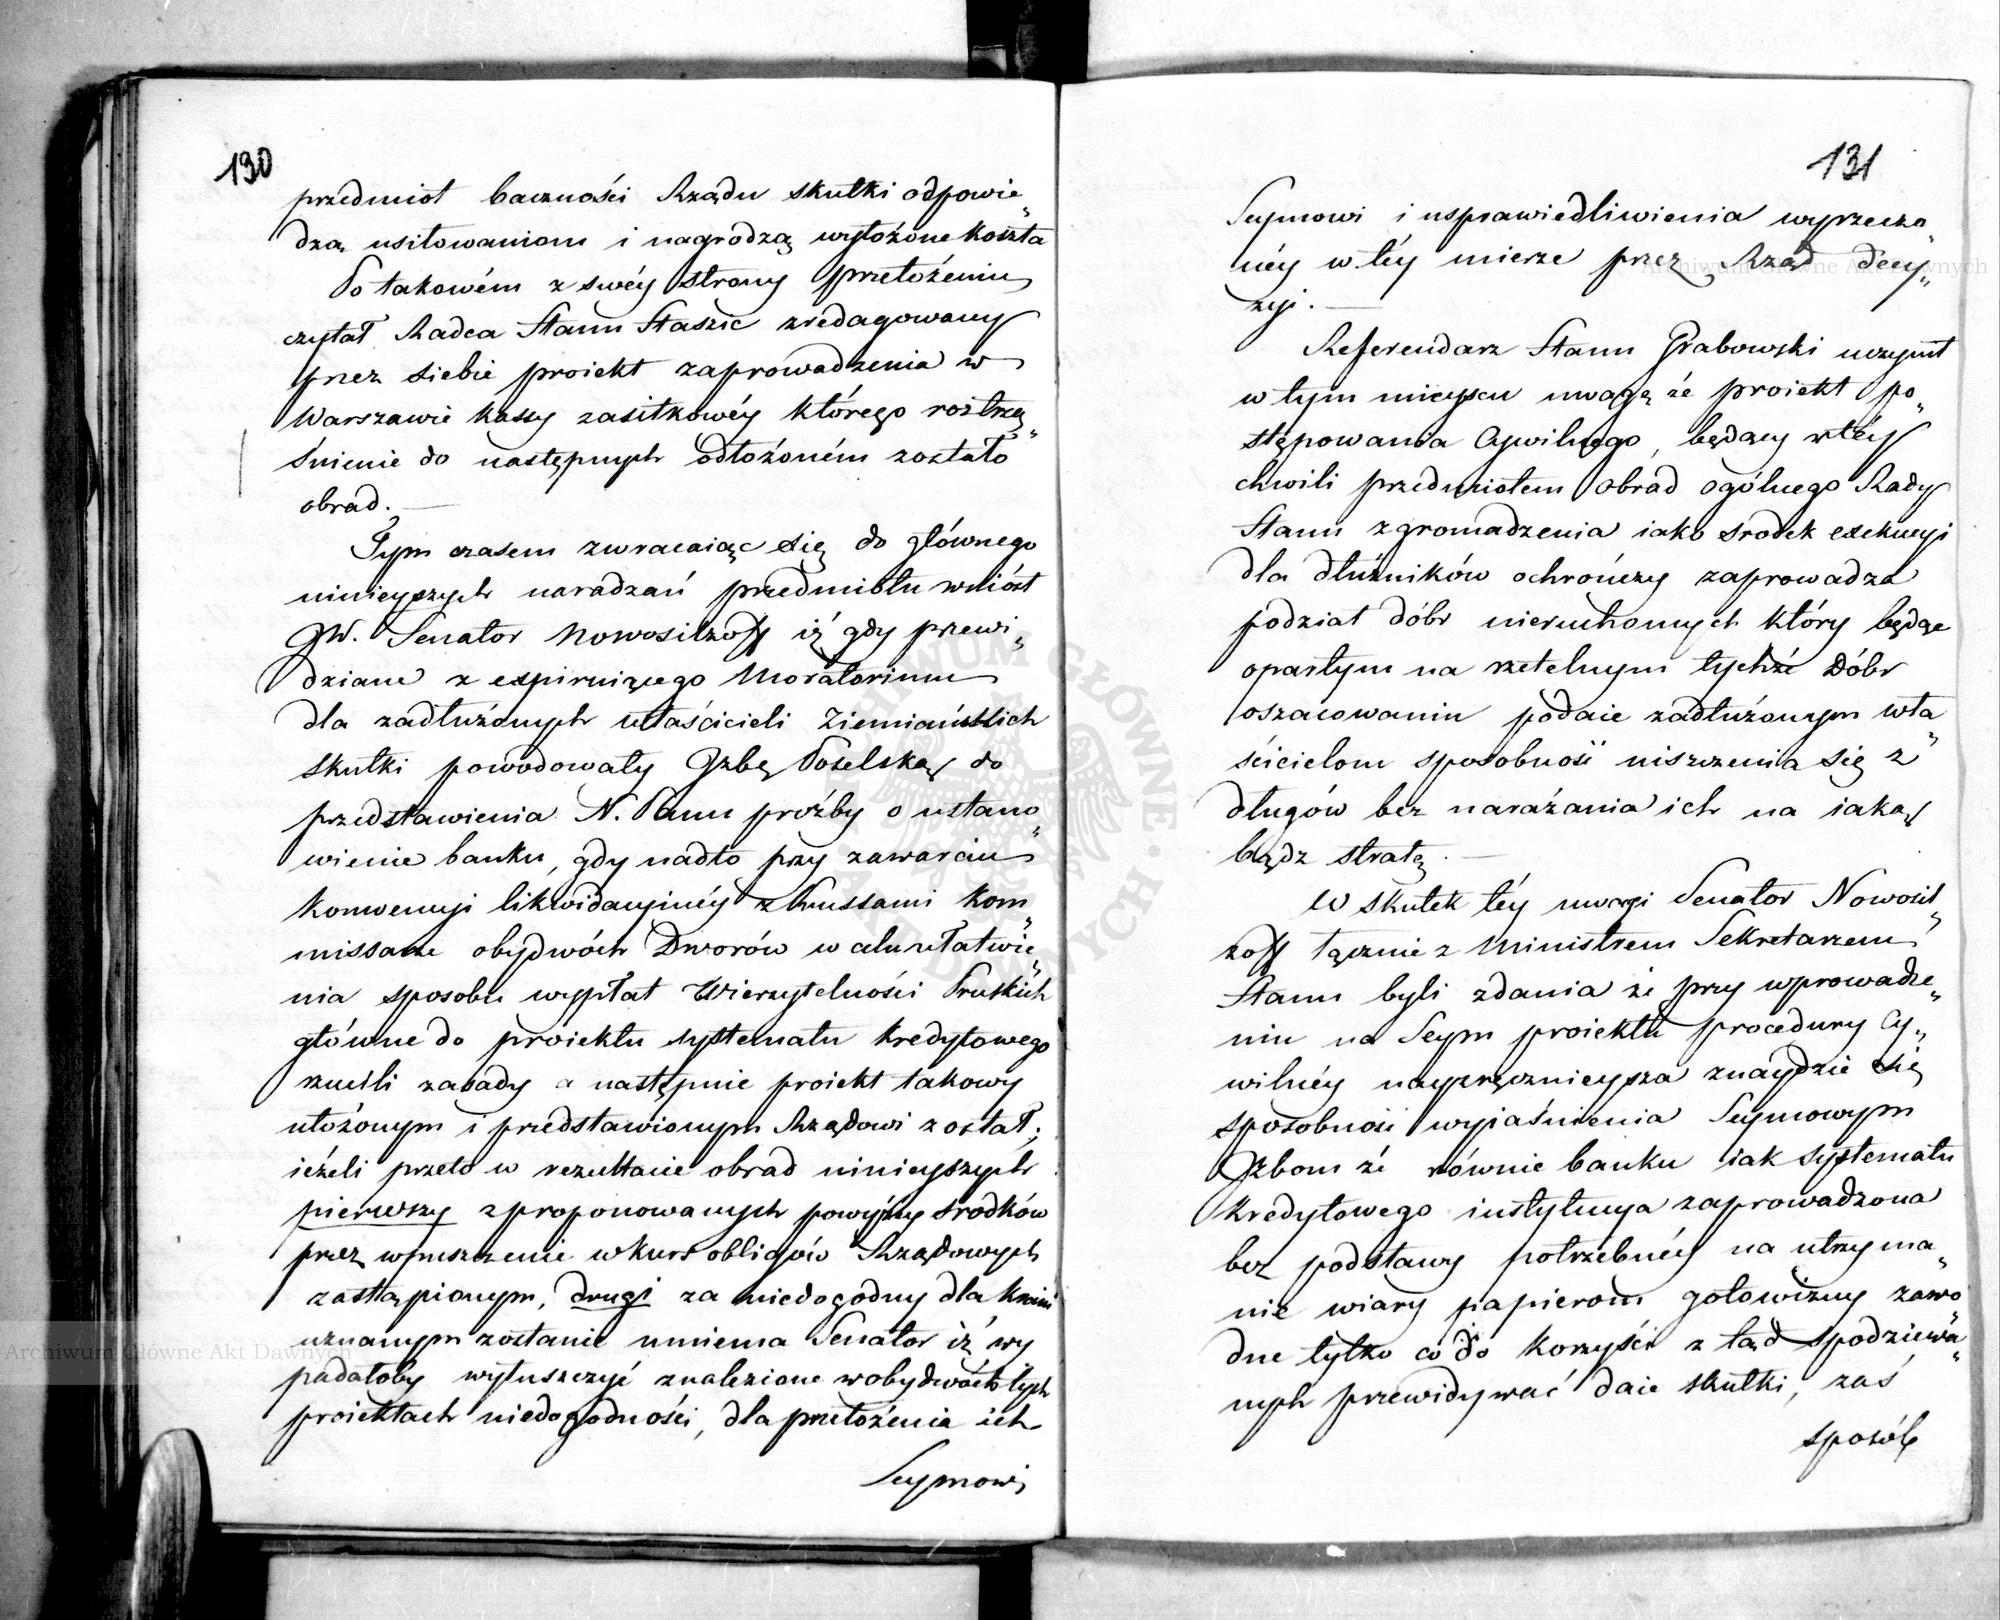 130
przedmiot baczności Rządu skutki odpowie„
dzą usiłowaniom i nagrodzą wyłożone koszta
Po takowém z swéy strony przełożeniu
czytał Radca Stanu Staszic zredagowany
przez siebie proiekt zaprowadzenia w
Warszawie kassy zasiłkowéy którego roztrzą„
śnienie do następnych odłożoném zostało
obrad. —
Tym czasem zwracaiąc się do głównego
ninieyszych naradzań przedmiotu wniósł
JW. Senator Nowosilzoff iż gdy przewi„
dziane z expiruiącego Moratorium
dla zadłużonych właścicieli Ziemiańskich
skutki powodowały Izbę Poselską do
przedstawienia N. Panu prośby o ustano„
wienie banku, gdy nadto przy zawarciu
konwencyi likwidacyinéy z Prussami kom„
missarze obydwóch Dworów w celu ułatwie„
nia sposobu wypłat Wierzytelności Pruskich
główne do proiektu systematu kredytowego
rzucili zasady a następnie proiekt takowy
ułożonym i przedstawionym Rządowi został;
ieżeli przeto w rezultacie obrad ninieyszych
pierwszy z proponowanych powyżey srodków
przez wpuszczenie w kurs obligów Rządowych
zastąpionym, drugi za niedogodny dla kraiu
uznanym zostanie mniema Senator iż wy
padałoby wyłuszczyć znalezione w obydwóch tych
proiektach niedogodności, dla przełożenia ich
Seymowi
131
Seymowi i usprawiedliwienia wyrzeczo„
néy w téy mierze przez Rząd decy„
zyi. —
Referendarz Stanu Grabowski uczynił
w tym mieyscu uwagę że proiekt po„
stępowania Cywilnego, będący w téy
chwili przedmiotem obrad ogólnego Rady
Stanu zgromadzenia iako srodek exekucyi
dla dłużników ochrończy zaprowadza
podział dóbr nieruchomych który będąc
opartym na rzetelnym tychże Dóbr
oszacowaniu podaie zadłużonym wła„
ścicielom sposobność uiszczenia się z
długów bez narażania ich na iaką
bądz stratę. —
W skutek téy uwagi Senator Nowosil„
zoff łącznie z Ministrem Sekretarzem
Stanu byli zdania że przy wprowadze„
niu na Seym proiektu procedury Cy„
wilnéy nayzręcznieysza znaydzie się
sposobność wyiaśnienia Seymowym
Izbom że równie banku iak systematu
kredytowego instytucya zaprowadzona
bez podstawy potrzebnéy na utrzyma„
nie wiary papierom gotowizny zawo„
dne tylko co do korzyści z tąd spodziewa„
nych przewidywać daie skutki, zaś
sposób
Archiwum Główne Akt Dawnych
Archiwum Główne Akt Dawnych